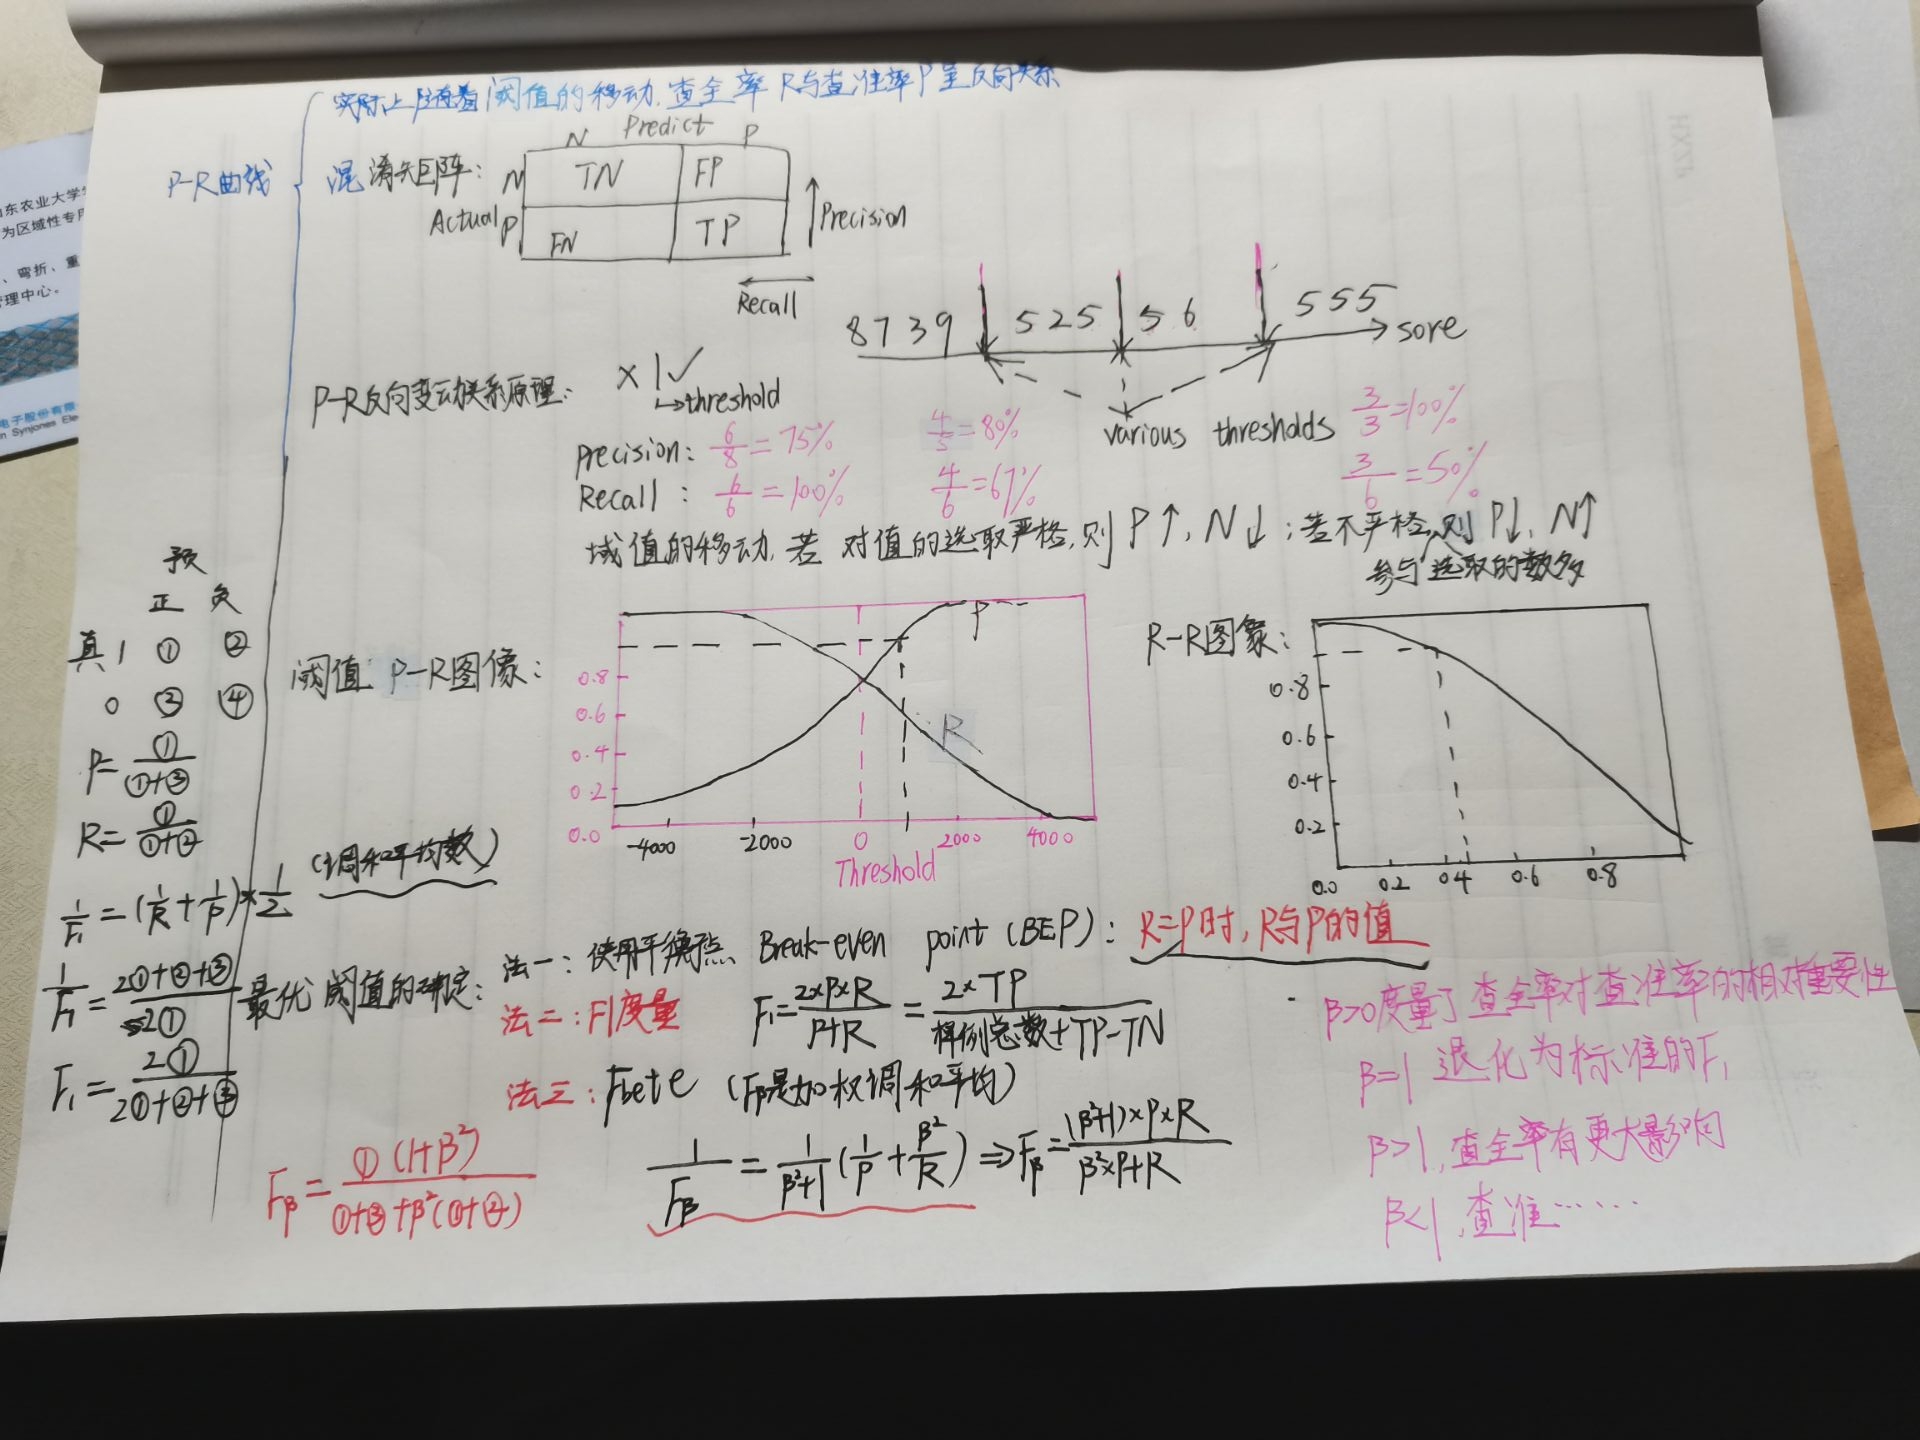 实际上随着阈值的移动,查全率R与查准率P呈反向关系
P-R曲线
混淆矩阵:
N Predict P
N TN FP
Actual P FN TP
Precision
Recall
8 7 3 9 5 2 5 5 6 5 5 5
sore
various thresholds
P-R反向变动关系原理:
× | ✓
→threshold
Precision: 6/8=75% 4/5=80% 3/3=100%
Recall: 6/6=100% 4/6=67% 3/6=50%
域值的移动,若对值的选取严格,则P↑,N↓;若不严格,则P↓,N↑
参与选取的数多
阈值 P-R图像:
P
R
0.8
0.6
0.4
0.2
0.0
-4000 -2000 0 2000 4000
Threshold
R-R图象:
0.8
0.6
0.4
0.2
0.0 0.2 0.4 0.6 0.8
预
正 负
真 1 ① ②
0 ③ ④
P=①/(①+③)
R=①/(①+②)
1/F₁=(1/R+1/P)×1/2 (调和平均数)
1/F₁=(2①+②+③)/2①
F₁=2①/(2①+②+③)
最优阈值的确定:
法一:使用平衡点 Break-even point (BEP): R=P时,R与P的值
法二:F1度量 F₁=2×P×R/(P+R)=2×TP/(样例总数+TP-TN)
法三:Fbete (Fβ是加权调和平均)
1/Fβ=1/(β²+1)(1/P+β²/R)⇒Fβ=(β²+1)×P×R/(β²×P+R)
Fβ=①(1+β²)/(①+③+β²(①+②))
β>0度量了查全率对查准率的相对重要性
β=1 退化为标准的F₁
β>1,查全率有更大影响
β<1,查准……
东农业大学
为区域性专用
、弯折、重
管理中心。
电子股份有限
n Synjones Ele